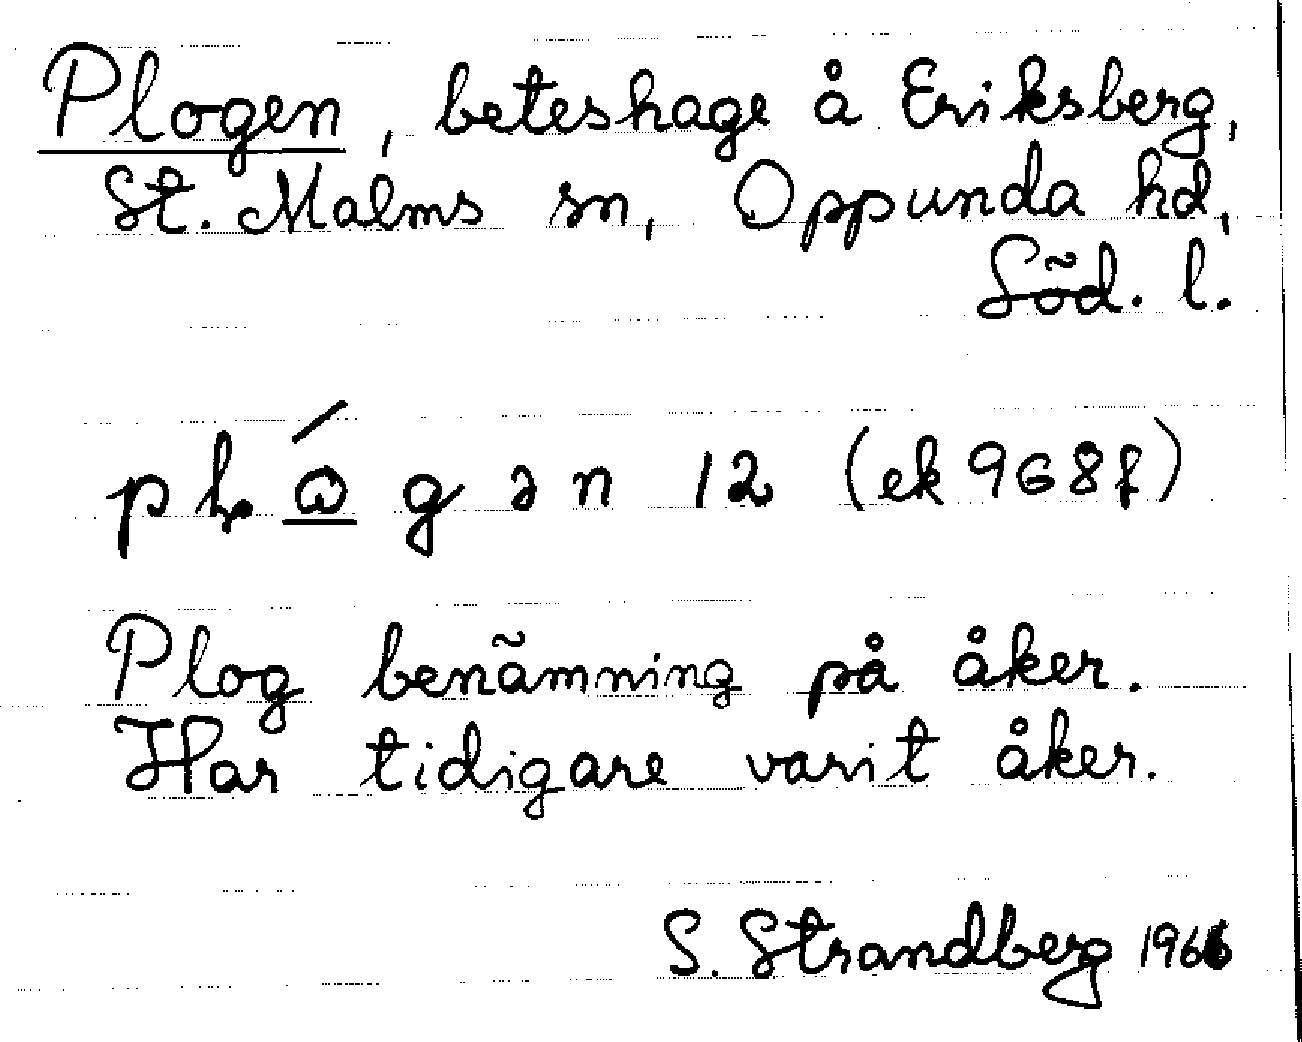 Plogen, beteshage å Eriksberg,
St. Malms sn, Oppunda hd,
Söd. l.
pḷώ̲gən 12 (ek 968f)
Plog benämning på åker.
Har tidigare varit åker.
S. Strandberg 1966